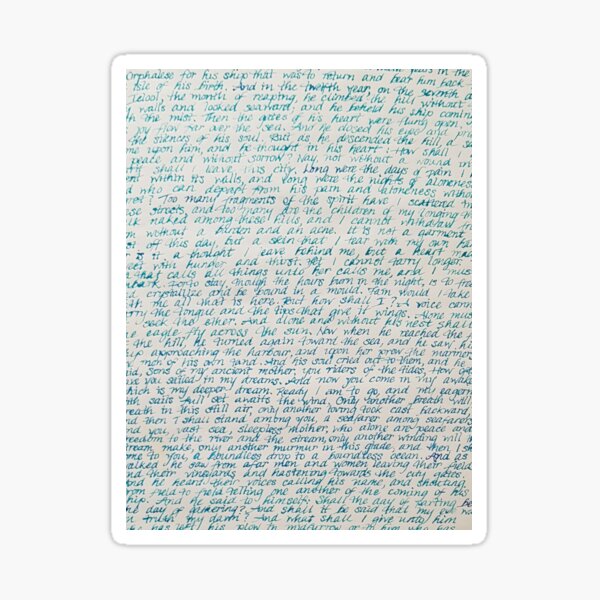 Orphalese for his ship that was to return and bear him back
isle of his birth. And in the twelfth year, on the seventh d
Ielool, the month of reaping, he climbed the hill without
walls and looked seaward; and he beheld his ship coming
h the mist. Then the gates of his heart were flung open,
joy flew far over the sea. And he closed his eyes and pray
the silences of his soul. But as he descended the hill, a s
me upon him, and he thought in his heart: How shall I
peace and without sorrow? Nay, not without a wound in
rit shall I leave this city. Long were the days of pain I
ent within its walls, and long were the nights of aloneness
d who can depart from his pain and aloneness without
gret? Too many fragments of the spirit have I scattered in
ese streets, and too many are the children of my longing th
k naked among these hills, and I cannot withdraw
m without a burden and an ache. It is not a garment
st off this day, but a skin that I tear with my own ha
r is it a thought I leave behind me, but a heart mad
eet with hunger and thirst. Yet I cannot tarry longer.
that calls all things unto her calls me, and I must
bark. For to stay, though the hours burn in the night, is to free
nd crystallize and be bound in a mould. Fain would I take
ith me all that is here. But how shall I? A voice cann
rry the tongue and the lips that give it wings. Alone must
seek the ether. And alone and without his nest shall
e eagle fly across the sun. Now when he reached the
the hill, he turned again toward the sea, and he saw hi
ip approaching the harbour, and upon her prow the mariners
men of his own land. And his soul cried out to them, and he
id, Sons of my ancient mother, you riders of the tides, How oft
ave you sailed in my dreams. And now you come in my awake
hich is my deeper dream. Ready I am to go, and my eagern
ith sails full set awaits the wind. Only another breath will
reath in this still air, only another loving look cast backward,
nd then I shall stand among you, a seafarer among seafarers
nd you, vast sea, sleepless mother, who alone are peace and
reedom to the river and the stream, only another winding will th
tream make, only another murmur in this glade, and then I sh
e to you, a boundless drop to a boundless ocean. And as
alked he saw from afar men and women leaving their field
nd their vineyards and hastening towards the city gates.
nd he heard their voices calling his name, and shouting
rom field to field telling one another of the coming of his
hip. And he said to himself: Shall the day of parting be
he day of gathering? And shall it be said that my eve wa
in truth my dawn? And what shall I give unto him
ho has left his plow in midfurrow, or to him who has